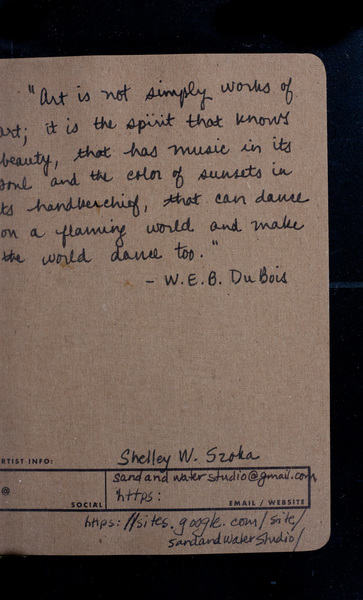 "Art is not simply works of
art; it is the spirit that knows
beauty, that has music in its
soul and the color of sunsets in
its handkerchief, that can dance
on a flaming world and make
the world dance too."
- W.E.B. DuBois
ARTIST INFO:
Shelley W. Szoka
sandandwaterstudio@gmail.com
@
https:
SOCIAL
EMAIL / WEBSITE
https://sites.google.com/site/
sandandwaterstudio/